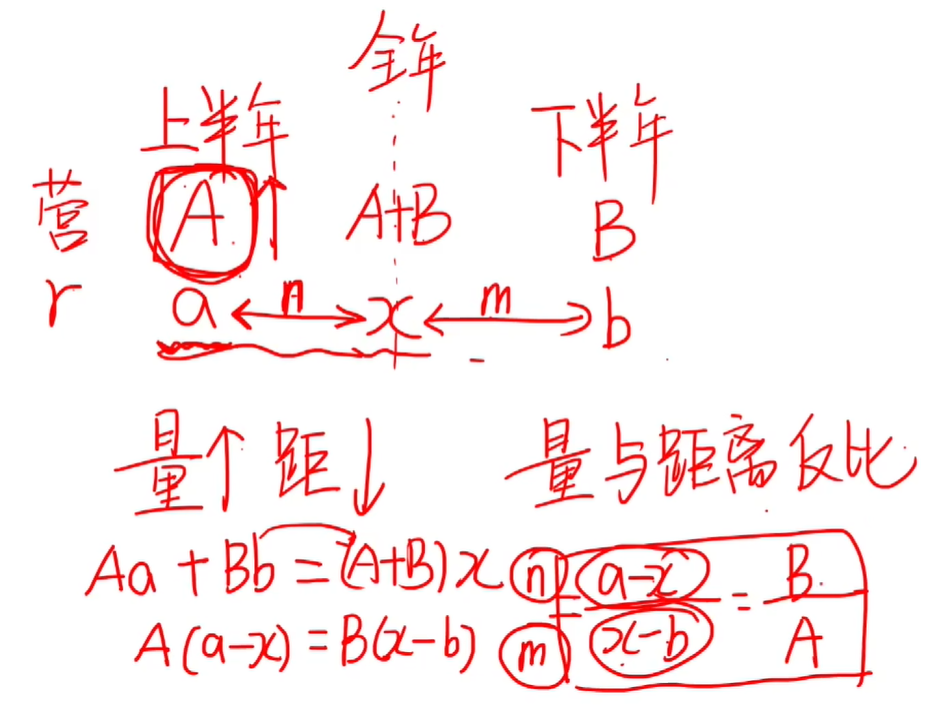 全年
上半年 下半年
营 A↑ A+B B
r a ←n→ x ←m→ b
量↑ 距↓ 量与距离反比
Aa+Bb=(A+B)x n = a-x / x-b = B / A
A(a-x)=B(x-b) m